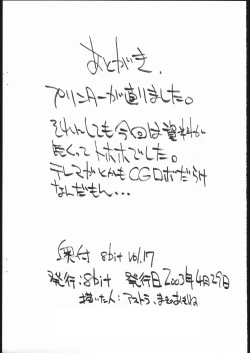 あとがき.
プリンターが直りました。
それにしても今回は資料が
無くってトホホでした。
テレマガとかもCGロボだらけ
なんだもん...
奥付 8bit vol.17
発行:8bit 発行日2003年4月29日
描いた人:アストラ・